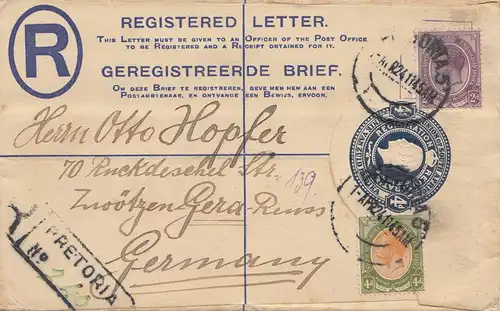 REGISTERED LETTER.
THIS LETTER MUST BE GIVEN TO AN OFFICER OF THE POST OFFICE
TO BE REGISTERED AND A RECEIPT OBTAINED FOR IT.
R
GEREGISTREERDE BRIEF.
OM DEZE BRIEF TE REGISTREREN, GEVE MEN HEM AAN EEN
POSTAMBTENAAR, EN ONTVANGE EEN BEWIJS, ERVOOR.
Herrn Otto Hopfer
70 Ruckdeschel Str.
139
Zwötzen-Gera-Reuss
Germany
PRETORIA
No
REGISTRATION
2d
4d
4d